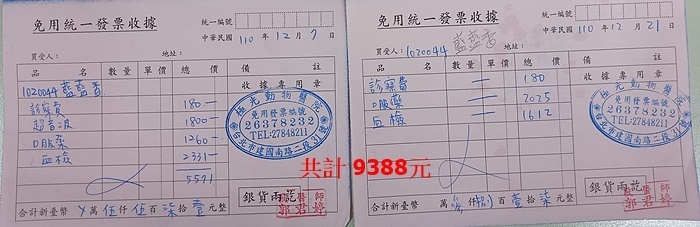 免用統一發票收據
統一編號
中華民國 110 年 12 月 7 日
買受人： 地址：
品名 數量 單價 總價 備註
收據專用章
1020044 藍藍香
診察費 180-
超音波 1800-
口服藥 1260-
血檢 2331-
5571
極光動物醫院
免用發票專用章
26378232
TEL:27848211
台北市建國南路二段31號
銀貨兩訖
獸醫師
郭君婷
合計新臺幣 萬 伍 仟 伍 佰 柒 拾 壹 元整
免用統一發票收據
統一編號
中華民國 110 年 12 月 21 日
買受人：1020044 藍藍香 地址：
品名 數量 單價 總價 備註
收據專用章
診察費 一 180
口服藥 一 2025
血檢 一 1612
極光動物醫院
免用發票專用章
26378232
TEL:27848211
台北市建國南路二段31號
銀貨兩訖
獸醫師
郭君婷
合計新臺幣 萬 仟 佰 壹 拾 柒 元整
共計 9388元